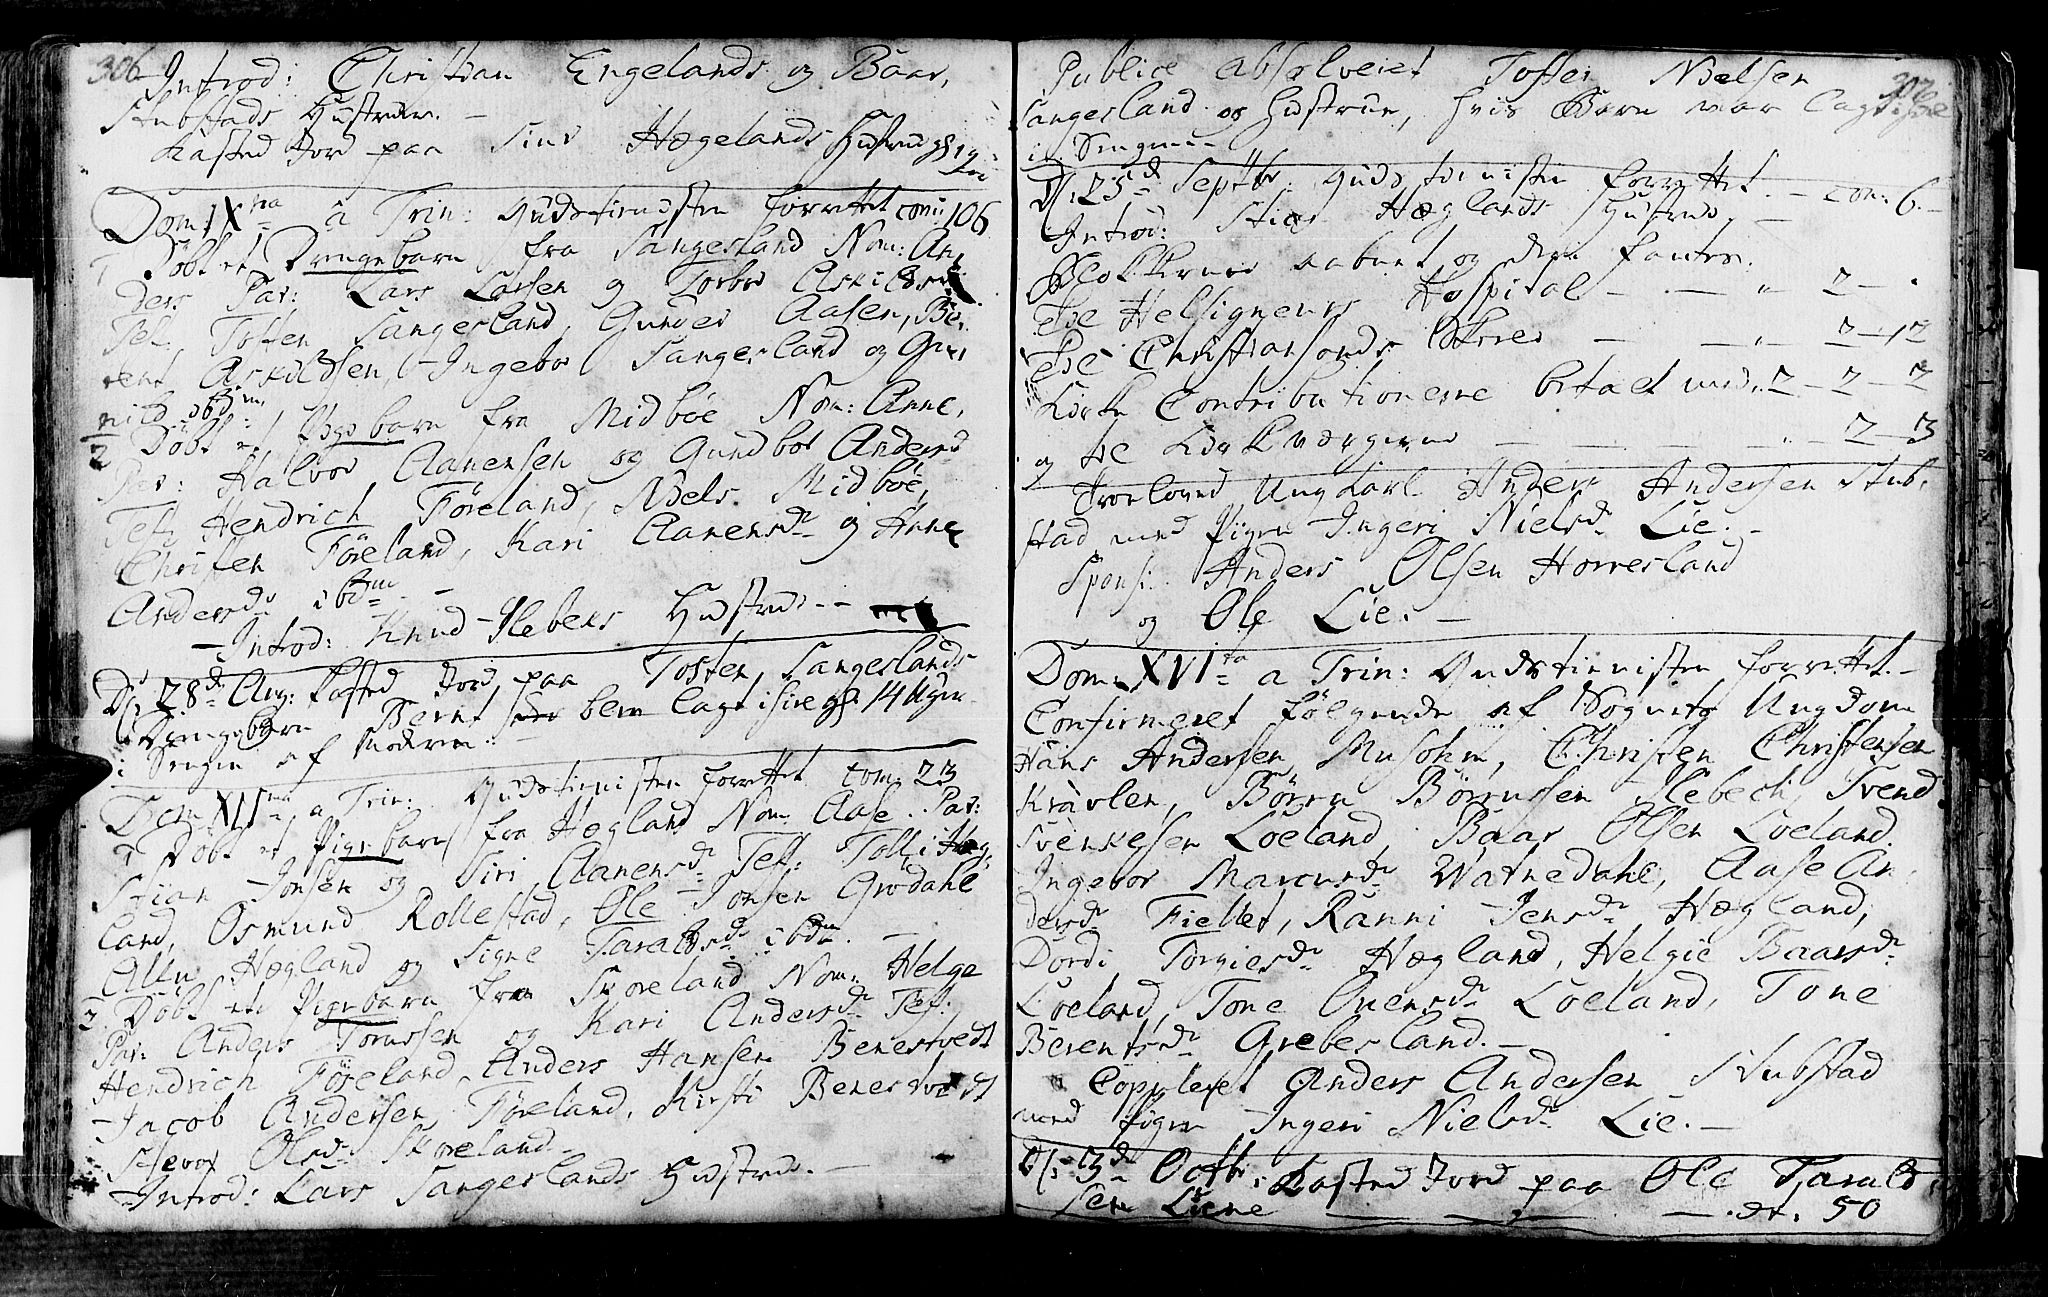 306
Introd: Christian Engelands og Baar
Stubstads Hustruer. –
Kasted Jord paa Siur Hægelands Hustrue
Dom: IX na a Trin: Gudstienesten forrettet com: 106
1 Döbt et Drengebarn fra Sangesland Nom: An,
ders Par: Lars Larsen og Torbor Askilds
Test: Tosten Sangesland, Gunder Aasen, Be,
rent Askildsen, Ingebor Sangesland og Gu
nild ibdm:
2 Döbt et Pigebarn fra Midböe Nom: Anne,
Par: Halvor Aanensen og Gundbor Andersd
Test: Hendrich Föreland, Niels Midböe,
Christen Föreland, Kari Aanensdr og Anne
Andersdr ibdm –
Introd: Knud Ilebeks Hustrue. –
D: 28de Aug: kasted Jord paa Tosten Sangeslands
Drengebarn Bernt blev lagt ihiel 14 Uger
i Sengen af Moderen. –
Dom XIIma a Trin: Gudstienisten forrettet com: 23
1 Döbt et Pigebarn fra Hægland Nom: Aase. Par:
Stian Jonsen og Siri Aanensdr Test: Tolli Hæg,
land, Osmund Rollestad, Ole Jonsen Grödahl
Hægland og Signe Taraldsdr ibdm. –
2. Döbt et Pigebarn fra Skoreland Nom: Helge
Par: Anders Tornssen og Kari Andersdr Test:
Hendrich Föreland, Anders Hansen Benestvedt
Jacob Andersen Föreland, Kirsti Benestvedt
Olsdr Skoreland.
Introd: Lars Sangeslands Hustrue. –
307
Publice absolveret Tosten Nielsen
Sangesland og Hustrue, hvis Barn var lagt ihiel
i Sengen –
D: 25de Septbr: Gudstienisten forrettet. – com: 6. –
Introd: Stian Hæglands Hustrue. –
Blokkerne aabnet og deri fantes:
Hospital – 2 –
De Christiansands – 2 – 12
Kirke Contributionerne betalt med 2 – 2 – 2
og de – 2 – 3
Troeloved Ungkarl Anders Andersen Stub,
stad med Pigen Ingeri Nielsdr Lie. –
Spons: Anders Olsen Horresland
og Ole Lie. –
Dom: XVIta a Trin: Gudstienisten forrettet. –
Confirmeret fölgende af Sognets Ungdom
Hans Andersen Musohm, Christen Christensen
Kravlen, Börru Börrussen Ilebech, Svend
Svenkesen Loeland, Baar Olsen Loeland.
Ingebor Marcusdr Watnedahl, Aase An,
dersdr Fiellet, Ranni Jensdr Hægland,
Dordi Torgiesdr Hægland, Helgie Baarsdr
Loeland, Tone Ouensdr Loeland, Tone
Berentsdr Grebesland. –
Copuleret Anders Andersen Stubstad
med Pigen Ingeri Nielsdr Lie. –
D: 3de Octbr: Kasted Jord paa Ole Tarald,
sen Liene – – æt. 50